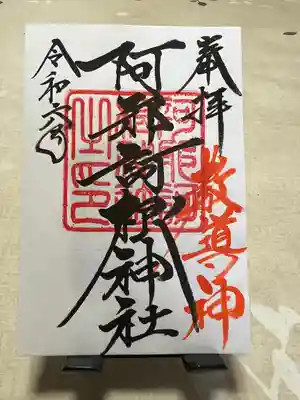 奉拝
教導の神
阿邪訶根神社
令和六年